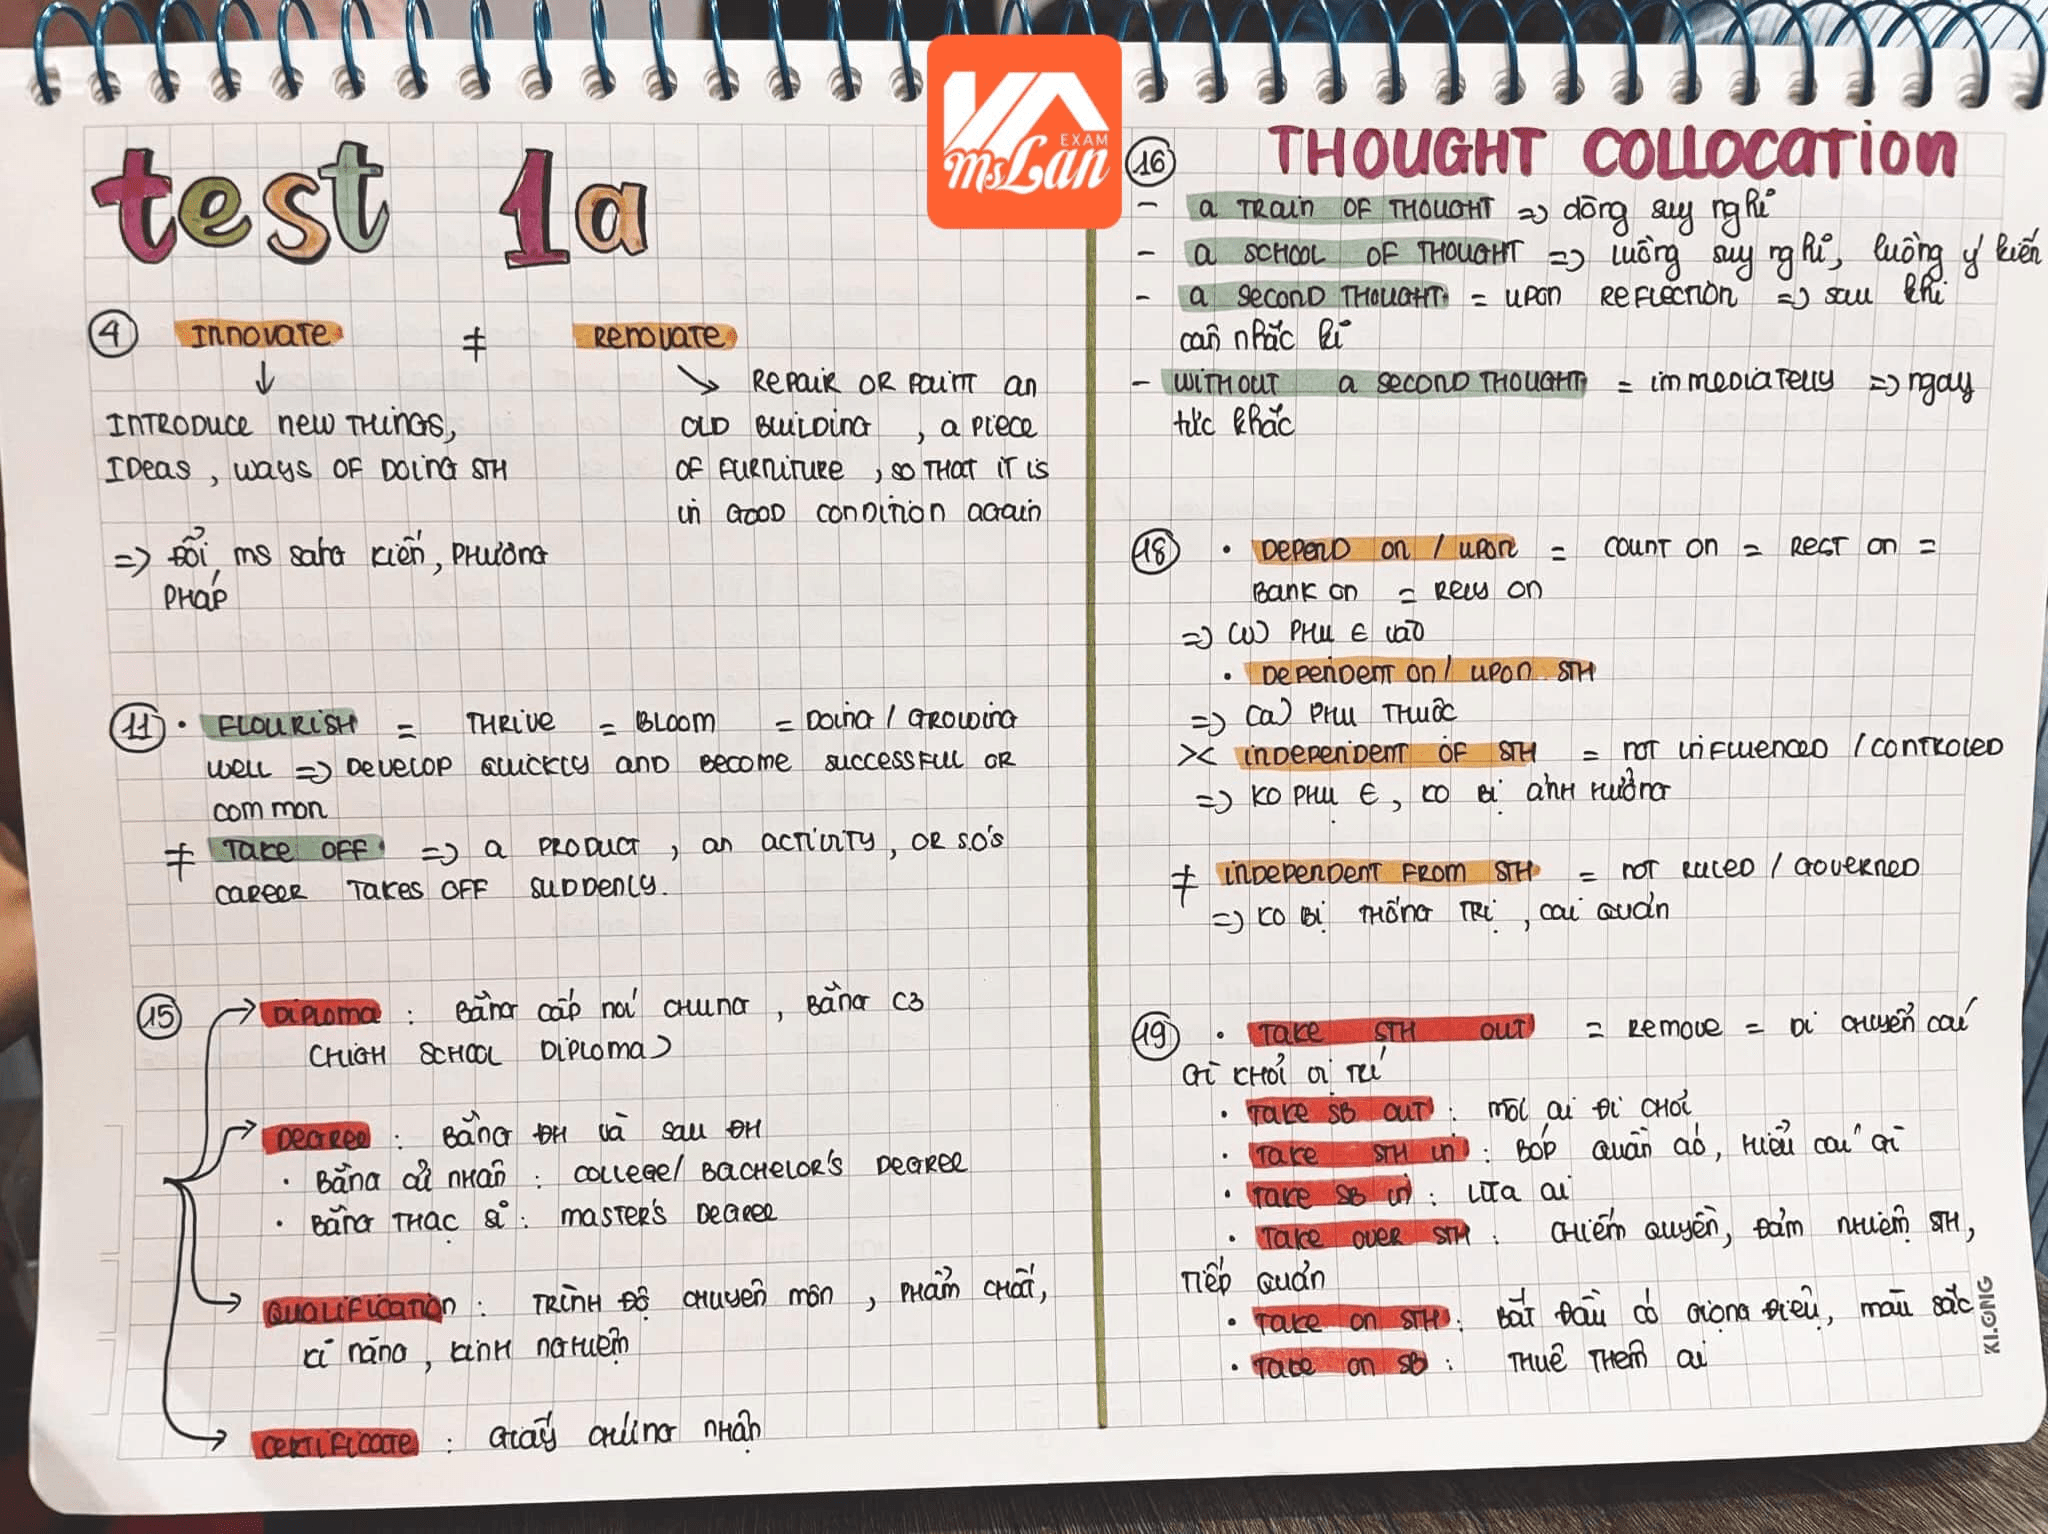 EXAM
MsLan
test 1a
4 INNOVATE ≠ RENOVATE
INTRODUCE NEW THINGS,
IDEAS, WAYS OF DOING STH
=> ĐỔI MS SÁNG KIẾN, PHƯƠNG
PHÁP
REPAIR OR PAINT AN
OLD BUILDING, A PIECE
OF FURNITURE, SO THAT IT IS
IN GOOD CONDITION AGAIN
11 • FLOURISH = THRIVE = BLOOM = DOING / GROWING
WELL => DEVELOP QUICKLY AND BECOME SUCCESSFUL OR
COMMON
≠ TAKE OFF => A PRODUCT, AN ACTIVITY, OR S.O'S
CAREER TAKES OFF SUDDENLY.
15 DIPLOMA : BẰNG CẤP NÓI CHUNG, BẰNG C3
(HIGH SCHOOL DIPLOMA)
DEGREE : BẰNG ĐH VÀ SAU ĐH
• BẰNG CỬ NHÂN : COLLEGE/ BACHELOR'S DEGREE
• BẰNG THẠC SĨ : MASTER'S DEGREE
QUALIFICATION : TRÌNH ĐỘ CHUYÊN MÔN, PHẨM CHẤT,
KĨ NĂNG, KINH NGHIỆM
CERTIFICATE : GIẤY CHỨNG NHẬN
16 THOUGHT COLLOCATION
- A TRAIN OF THOUGHT => dòng suy nghĩ
- A SCHOOL OF THOUGHT => luồng suy nghĩ, luồng ý kiến
- A SECOND THOUGHT = UPON REFLECTION => sau khi
cân nhắc kĩ
- WITHOUT A SECOND THOUGHT = IMMEDIATELLY => ngay
tức khắc
18 • DEPEND ON / UPON = COUNT ON = REST ON =
BANK ON = RELY ON
=> (V) PHỤ € VÀO
• DEPENDENT ON / UPON STH
=> (a) PHỤ THUỘC
>< INDEPENDENT OF STH = NOT INFLUENCED / CONTROLED
=> KO PHỤ €, KO BỊ ẢNH HƯỞNG
≠ INDEPENDENT FROM STH = NOT RULED / GOVERNED
=> KO BỊ THỐNG TRỊ, CAI QUẢN
19 • TAKE STH OUT = REMOVE = DI CHUYỂN CÁI
GÌ KHỎI VỊ TRÍ
• TAKE SB OUT : MỜI AI ĐI CHƠI
• TAKE STH IN : BÓP QUẦN ÁO, HIỂU CÁI GÌ
• TAKE SB IN : LỪA AI
• TAKE OVER STH : CHIẾM QUYỀN, ĐẢM NHIỆM STH,
TIẾP QUẢN
• TAKE ON STH : BẮT ĐẦU CÓ GIỌNG ĐIỆU, MÀU SẮC
• TAKE ON SB : THUÊ THÊM AI
KLONG